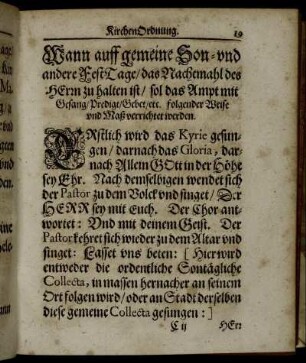 KirchenOrdnung. 19
Wann auff gemeine Son- vnd
andere FestTage / das Nachtmahl des
HErrn zu halten ist / sol das Ampt mit
Gesang / Predigt / Gebet / etc. folgender Weise
vnd Maß verrichtet werden.
ERstlich wird das Kyrie gesun-
gen / darnach das Gloria, dar-
nach Allein GOtt in der Höhe
sey Ehr. Nach demselbigen wendet sich
der Pastor zu dem Volck vnd singet / Der
HERR sey mit Euch. Der Chor ant-
wortet: Vnd mit deinem Geist. Der
Pastor kehret sich wieder zu dem Altar vnd
singet: Lasset vns beten: [ Hier wird
entweder die ordentliche Sontägliche
Collecta, in massen hernacher an seinem
Ort folgen wird / oder an Stadt derselben
diese gemeine Collecta gesungen: ]
C ij HErr